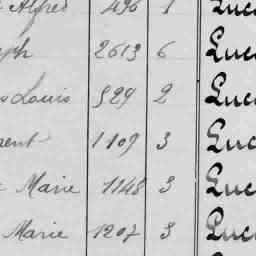 Alfred 496 1 Luc
eph 2613 6 Luc
s Louis 929 2 Luc
rent 1109 3 Luc
e Marie 1148 3 Luc
Marie 1207 3 Luc